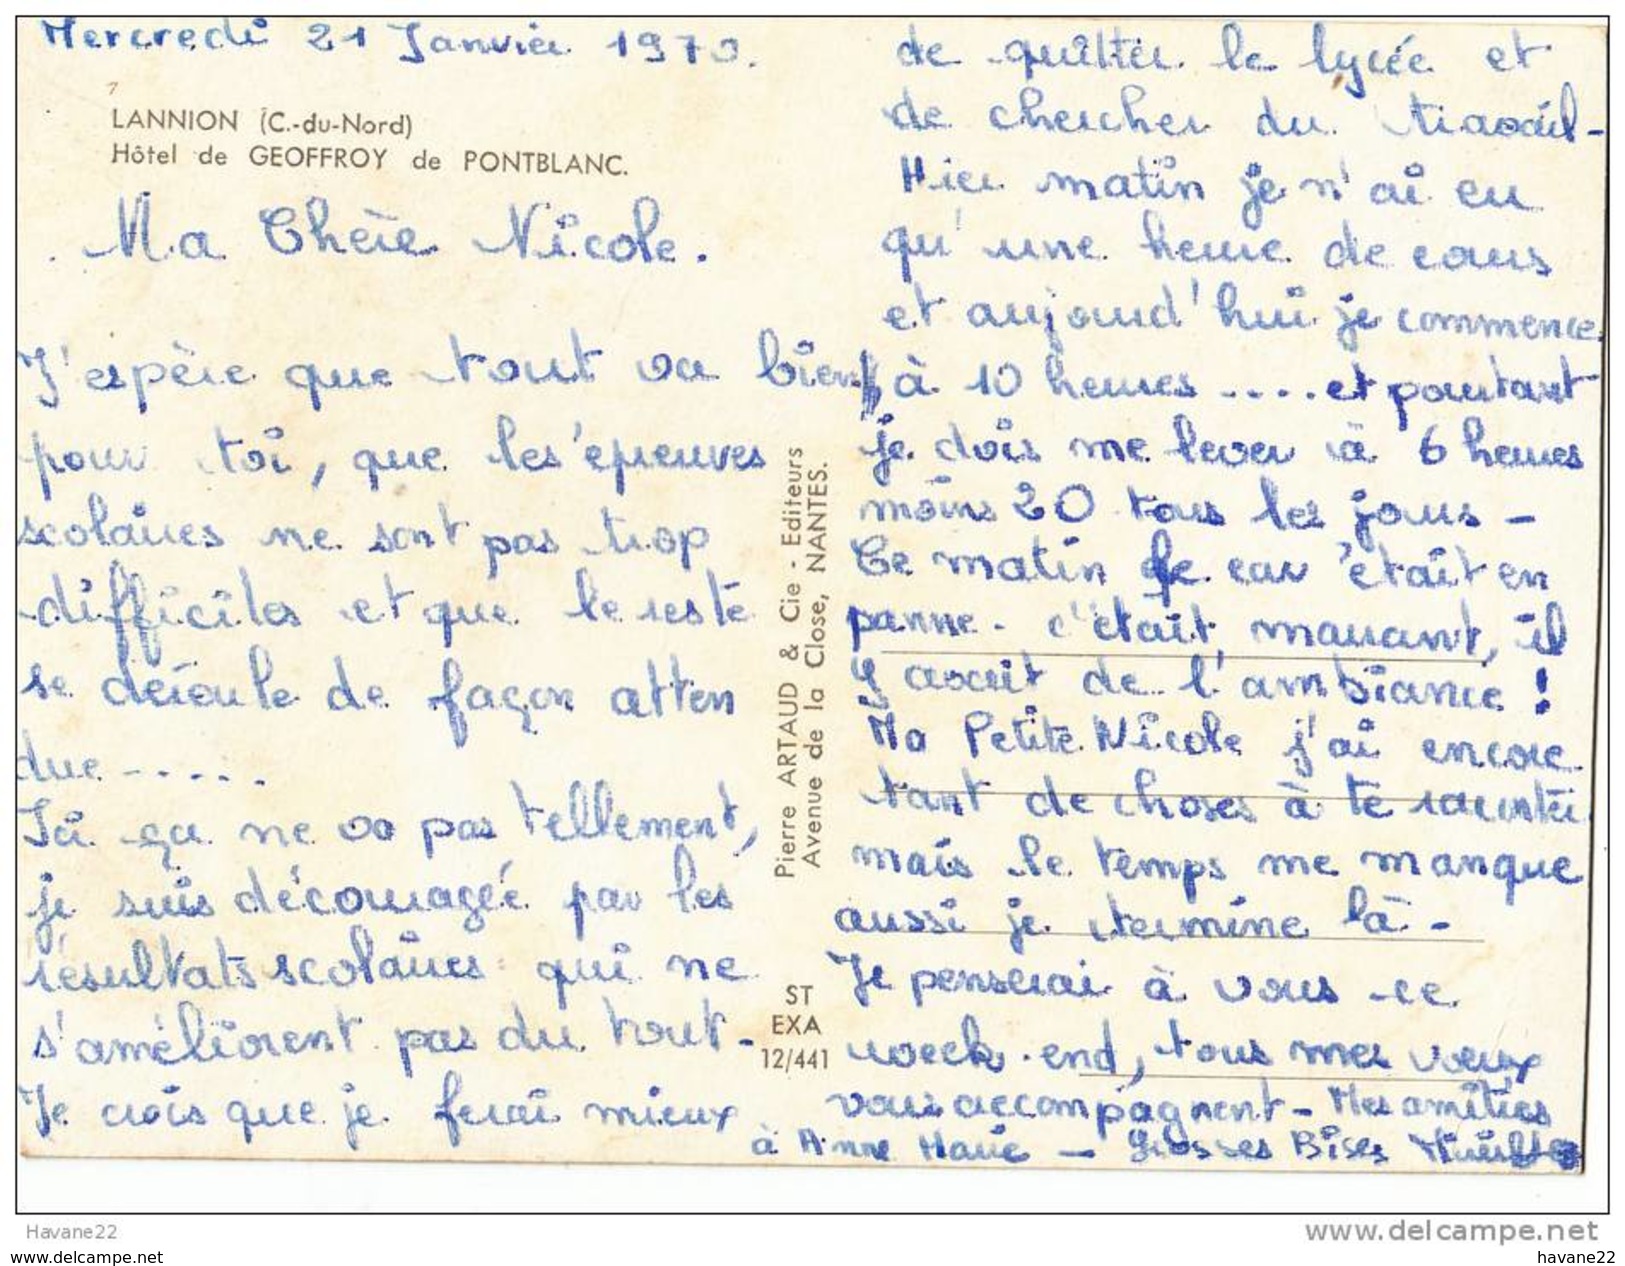 Mercredi 21 Janvier 1970.
7
LANNION (C.-du-Nord)
Hôtel de GEOFFROY de PONTBLANC.
Ma Chère Nicole.
J'espère que tout va bien
pour toi, que les épreuves
scolaires ne sont pas trop
difficiles et que le reste
se déroule de façon atten
due -.....
Ici ça ne va pas tellement,
je suis découragée par les
résultats scolaires qui ne
s'améliorent pas du tout -
Je crois que je ferai mieux
de quitter le lycée et
de chercher du travail -
Hier matin je n'ai eu
qu'une heure de cours
et aujourd'hui je commence
à 10 heures ..... et pourtant
je dois me lever à 6 heures
moins 20 tous les jours -
Ce matin le car était en
panne - c'était marrant, il
y avait de l'ambiance !
Ma Petite Nicole j'ai encore
tant de choses à te raconter
mais le temps me manque
aussi je termine là -
Je penserai à vous ce
week-end, tous mes voeux
vous accompagnent - Mes amitiés
à Anne Marie - Grosses Bises
Pierre ARTAUD & Cie - Editeurs
Avenue de la Close, NANTES.
ST
EXA
12/441
Havane22
www.delcampe.net
www.delcampe.net
havane22